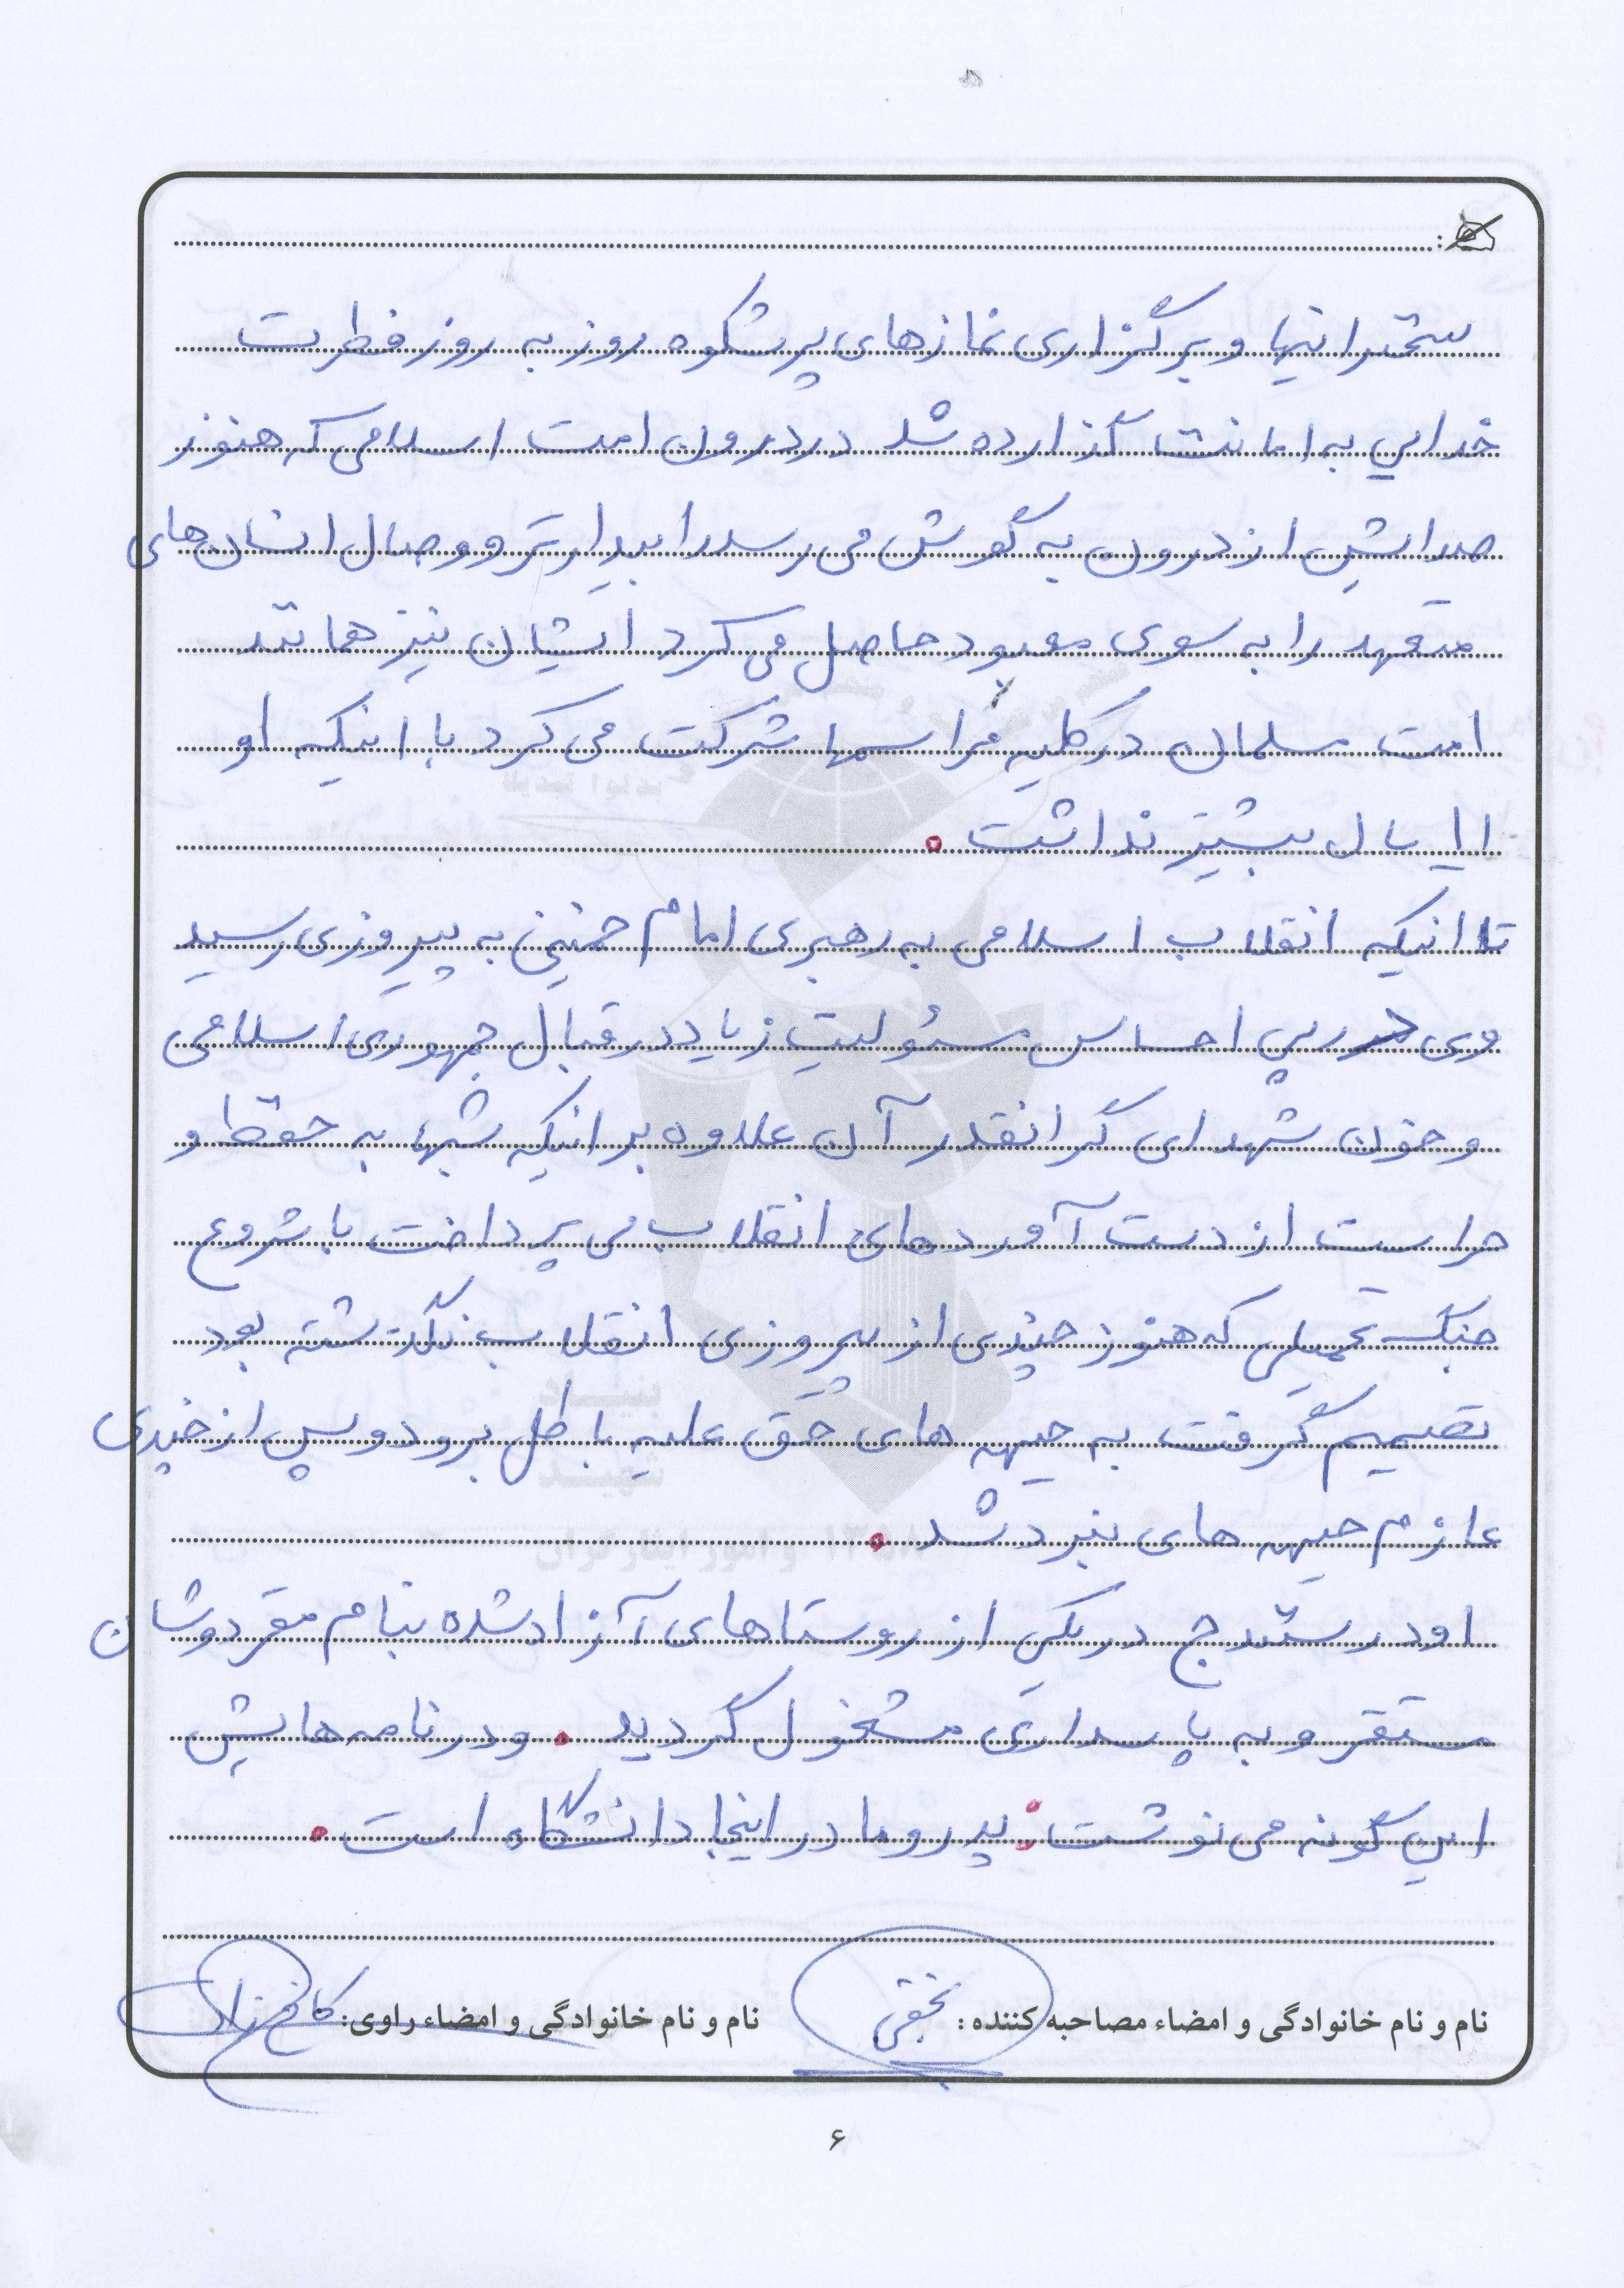 سخنرانیها و برگزاری نمازهای پرشکوه روز به روز فطرت
خدایی به امانت گذارده شد در درون امت اسلامی که هنوز
صدایش از درون به گوش می رسد را بیدارتر و وصال انسان های
متعهد را به سوی معبود حاصل می کرد ایشان نیز همانند
امت مسلمان در کلیه مراسمها شرکت می کرد با اینکه او
۱۱ سال بیشتر نداشت .
تا اینکه انقلاب اسلامی به رهبری امام خمینی به پیروزی رسید
وی در پی احساس مسئولیت زیاد در قبال جمهوری اسلامی
و خون شهدای گرانقدر آن علاوه بر اینکه شبها به حفظ و
حراست از دست آوردهای انقلاب می پرداخت با شروع
جنگ تحمیلی که هنوز چندی از پیروزی انقلاب نگذشته بود
تصمیم گرفت به جبهه های حق علیه باطل برود و پس از چندی
عازم جبهه های نبرد شد .
او در سنندج در یکی از روستاهای آزاد شده بنام مقردوشان
مستقر و به پاسداری مشغول گردید . و در نامه هایش
این گونه می نوشت : پدر و ما در اینجا دانشگاه است .
نام و نام خانوادگی و امضاء مصاحبه کننده : نام و نام خانوادگی و امضاء راوی:
۶